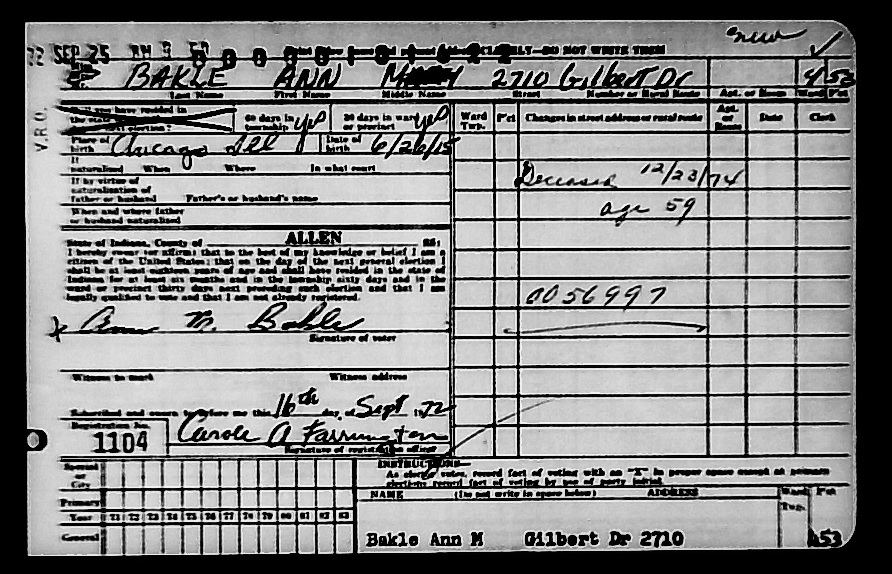 new ✓
72 SEP 25
DO NOT WRITE THEM
BAKLE ANN 2710 Gilbert Dr 4 53
Last Name First Name Middle Name Street Number or Rural Route Apt. or Room Ward Pct
V.R.O.
have you resided in the state next election? 60 days in township yes 30 days in ward or precinct yes
Ward Twp. P'ct Changes in street address or rural route Apt. or Route Date Clerk
Place of birth Chicago Ill Date of birth 6/26/15
If naturalized When Where In what court
Deceased 12/23/74
If by virtue of naturalization of father or husband Father's or husband's name
age 59
When and where father or husband naturalized
State of Indiana, County of ALLEN SS:
I hereby swear (or affirm) that to the best of my knowledge or belief I am a
citizen of the United States; that on the day of the next general election I
shall be at least eighteen years of age and shall have resided in the state of
Indiana for at least six months and in the township sixty days and in the
ward or precinct thirty days next preceding such election and that I am
legally qualified to vote and that I am not already registered.
0056997
x Ann M. Bakle
Signature of voter
Witness to mark Witness address
Subscribed and sworn to before me this 16th day of Sept 1972
Registration No.
1104 Carole A Farrington
Signature of registration officer
INSTRUCTIONS
As elector votes, record fact of voting with an "X" in proper space except at primary
elections record fact of voting by use of party initial.
Special or City
Primary
Year 71 72 73 74 75 76 77 78 79 80 81 82 83
General
NAME (Do not write in space below) ADDRESS Ward Twp. P'ct
Bakle Ann M Gilbert Dr 2710 453